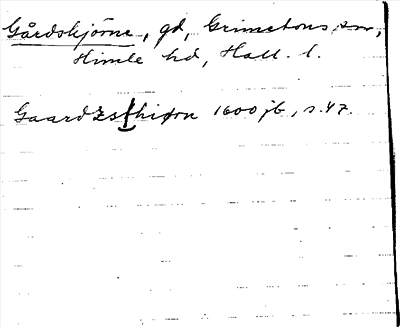 Gårdskjörne, gd, Grimetons sn,
Himle hd, Hall. l.
Gaardzskhiørn 1600 jb, s. 47.